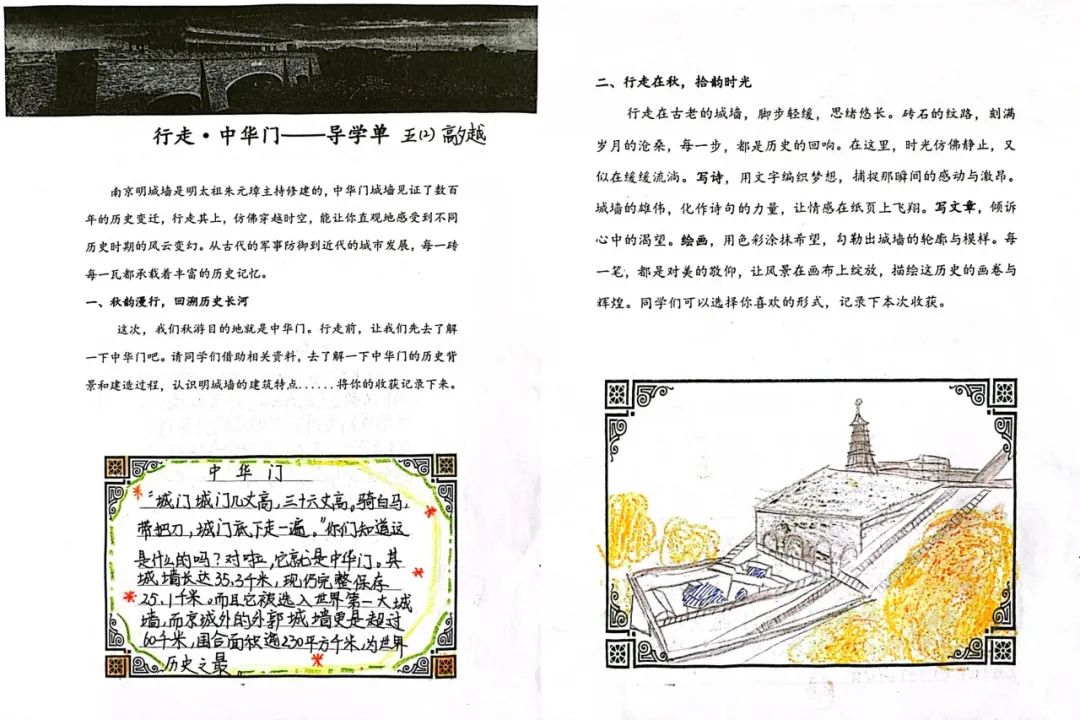 行走·中华门——导学单 五(2) 高越
南京明城墙是明太祖朱元璋主持修建的，中华门城墙见证了数百
年的历史变迁，行走其上，仿佛穿越时空，能让你直观地感受到不同
历史时期的风云变幻。从古代的军事防御到近代的城市发展，每一砖
每一瓦都承载着丰富的历史记忆。
一、秋韵漫行，回溯历史长河
这次，我们秋游目的地就是中华门。行走前，让我们先去了解
一下中华门吧。请同学们借助相关资料，去了解一下中华门的历史背
景和建造过程，认识明城墙的建筑特点......将你的收获记录下来。
中华门
“城门城门几丈高，三十六丈高。骑白马，
带把刀，城门底下走一遍。”你们知道这
是什么的吗？对啦，它就是中华门。其
城墙长达35.3千米，现仍完整保存
25.1千米。而且它被选入世界第一大城
墙，而京城外的外郭城墙更是超过
60千米，围合面积逾230平方千米，为世界
历史之最。
二、行走在秋，拾韵时光
行走在古老的城墙，脚步轻缓，思绪悠长。砖石的纹路，刻满
岁月的沧桑，每一步，都是历史的回响。在这里，时光仿佛静止，又
似在缓缓流淌。写诗，用文字编织梦想，捕捉那瞬间的感动与激昂。
城墙的雄伟，化作诗句的力量，让情感在纸页上飞翔。写文章，倾诉
心中的渴望。绘画，用色彩涂抹希望，勾勒出城墙的轮廓与模样。每
一笔，都是对美的敬仰，让风景在画布上绽放，描绘这历史的画卷与
辉煌。同学们可以选择你喜欢的形式，记录下本次收获。